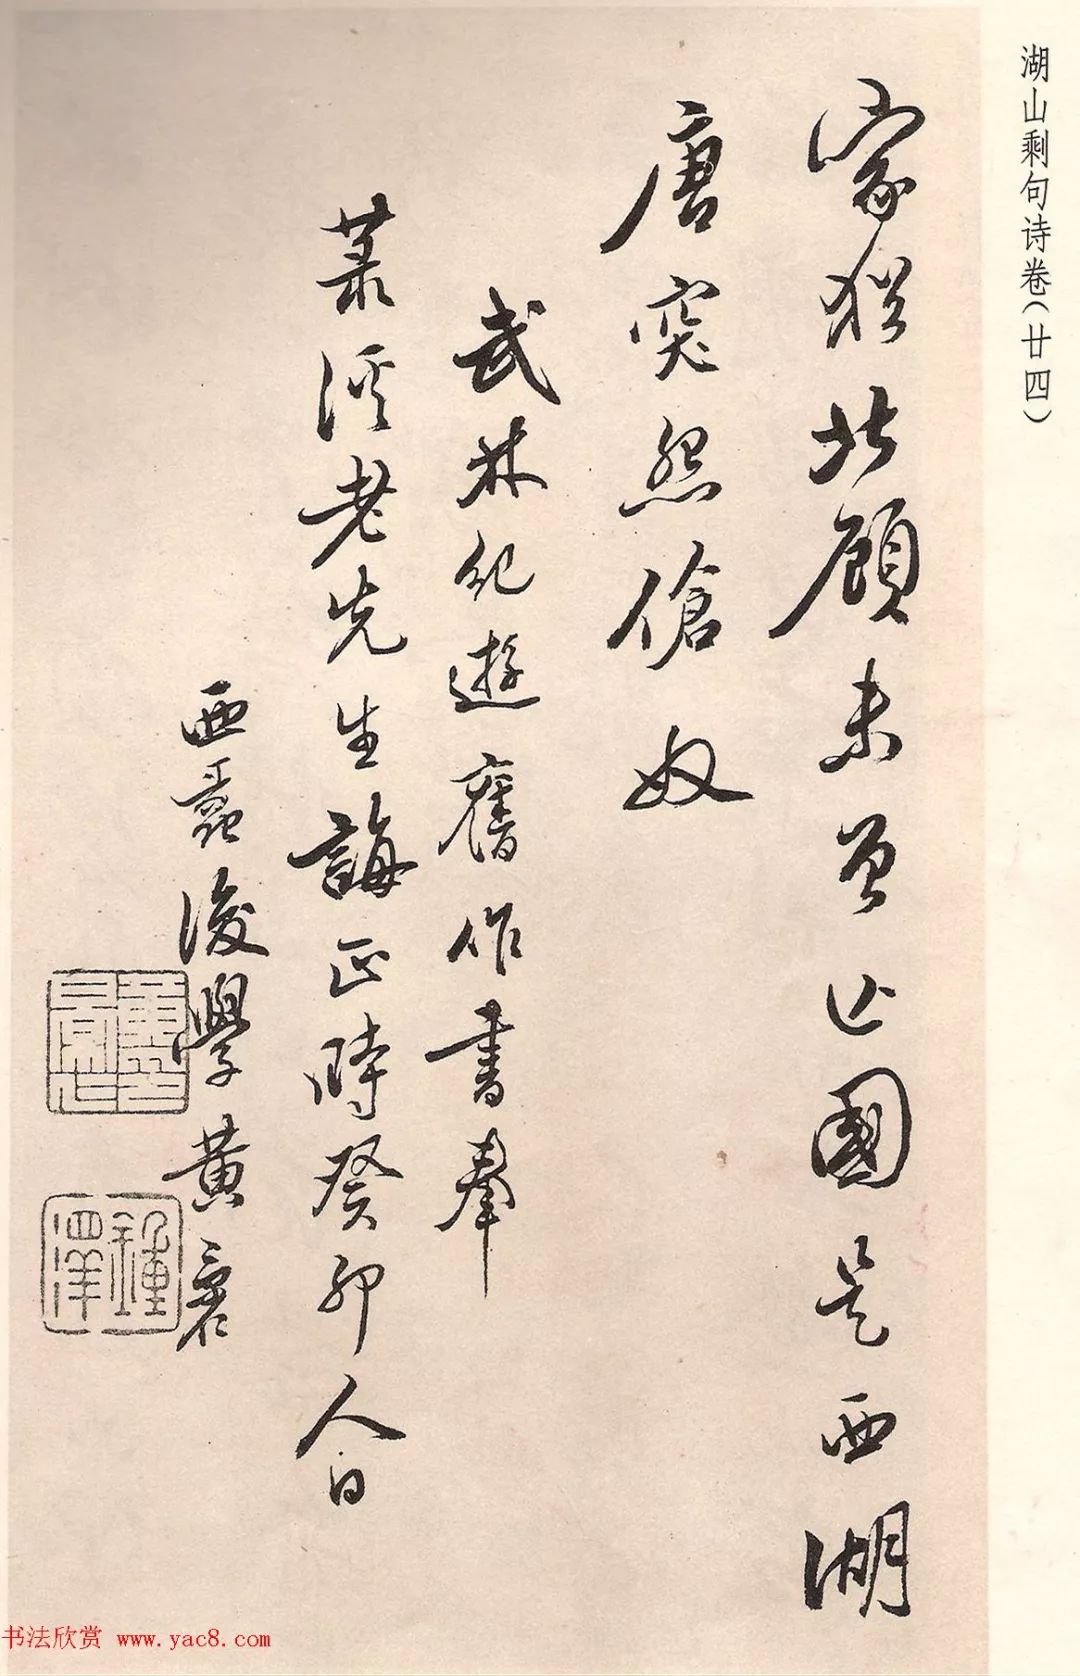 湖山剩句诗卷(廿四)
家猶北顧未曾亡國是西湖
唐突怨傖奴
武林紀遊舊作書奉
菉溪老先生誨正時癸卯人日
西蠡後學黄
鍾澤
书法欣赏 www.yac8.com